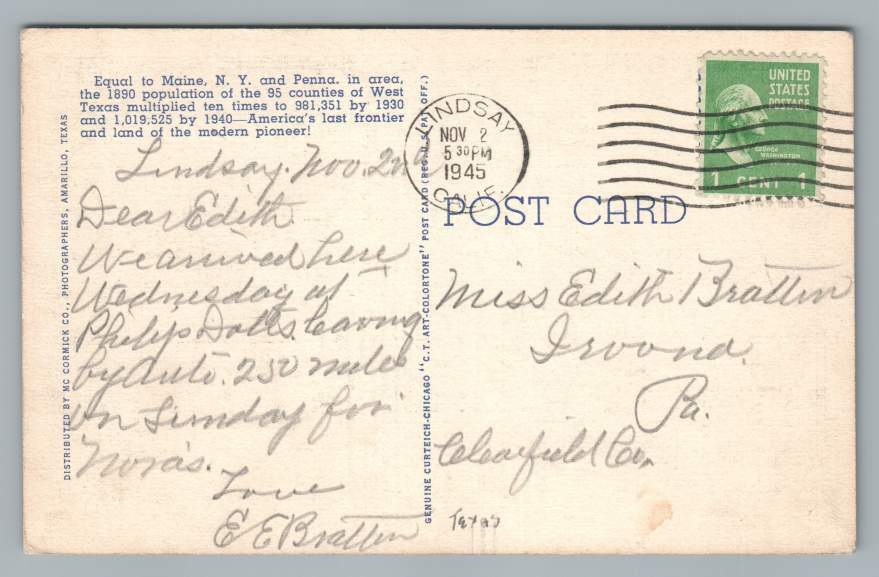 Equal to Maine, N. Y. and Penna. in area,
the 1890 population of the 95 counties of West
Texas multiplied ten times to 981,351 by 1930
and 1,019,525 by 1940—America's last frontier
and land of the modern pioneer!
DISTRIBUTED BY MC CORMICK CO., PHOTOGRAPHERS, AMARILLO, TEXAS
Lindsay. Nov. 2nd
Dear Edith
We arrived here
Wednesday at
Philip's Leaving
by Auto. 250 miles
on Sunday for
Nora's.
Love
E E Bratten
GENUINE CURTEICH-CHICAGO "C.T. ART-COLORTONE" POST CARD (REG. U.S. PAT. OFF.)
LINDSAY
NOV 2
5 30 PM
1945
CALIF.
UNITED
STATES
POSTAGE
GEORGE
WASHINGTON
1 CENT 1
POST CARD
Miss Edith Bratten
Irvona
Pa.
Clearfield Co.
Texas